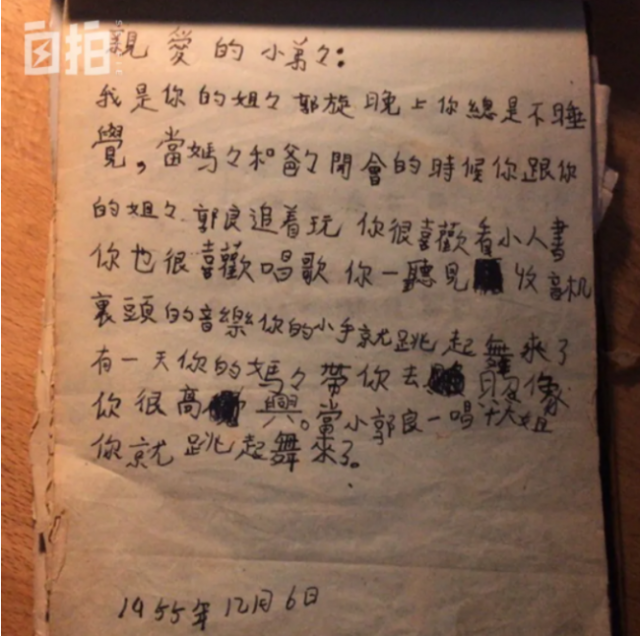 自拍
親愛的小弟々：
我是你的姐々郭旋晚上你總是不睡
覺，當媽々和爸々開會的時候你跟你
的姐々郭良追着玩 你很喜歡看小人書
你也很喜歡唱歌 你一聽見 收音机
裏頭的音樂你的小手就跳起舞來了
有一天你的媽々帶你去 照像
你很高 興。當小郭良一唱 姐
你就跳起舞來了。
1955年12月6日